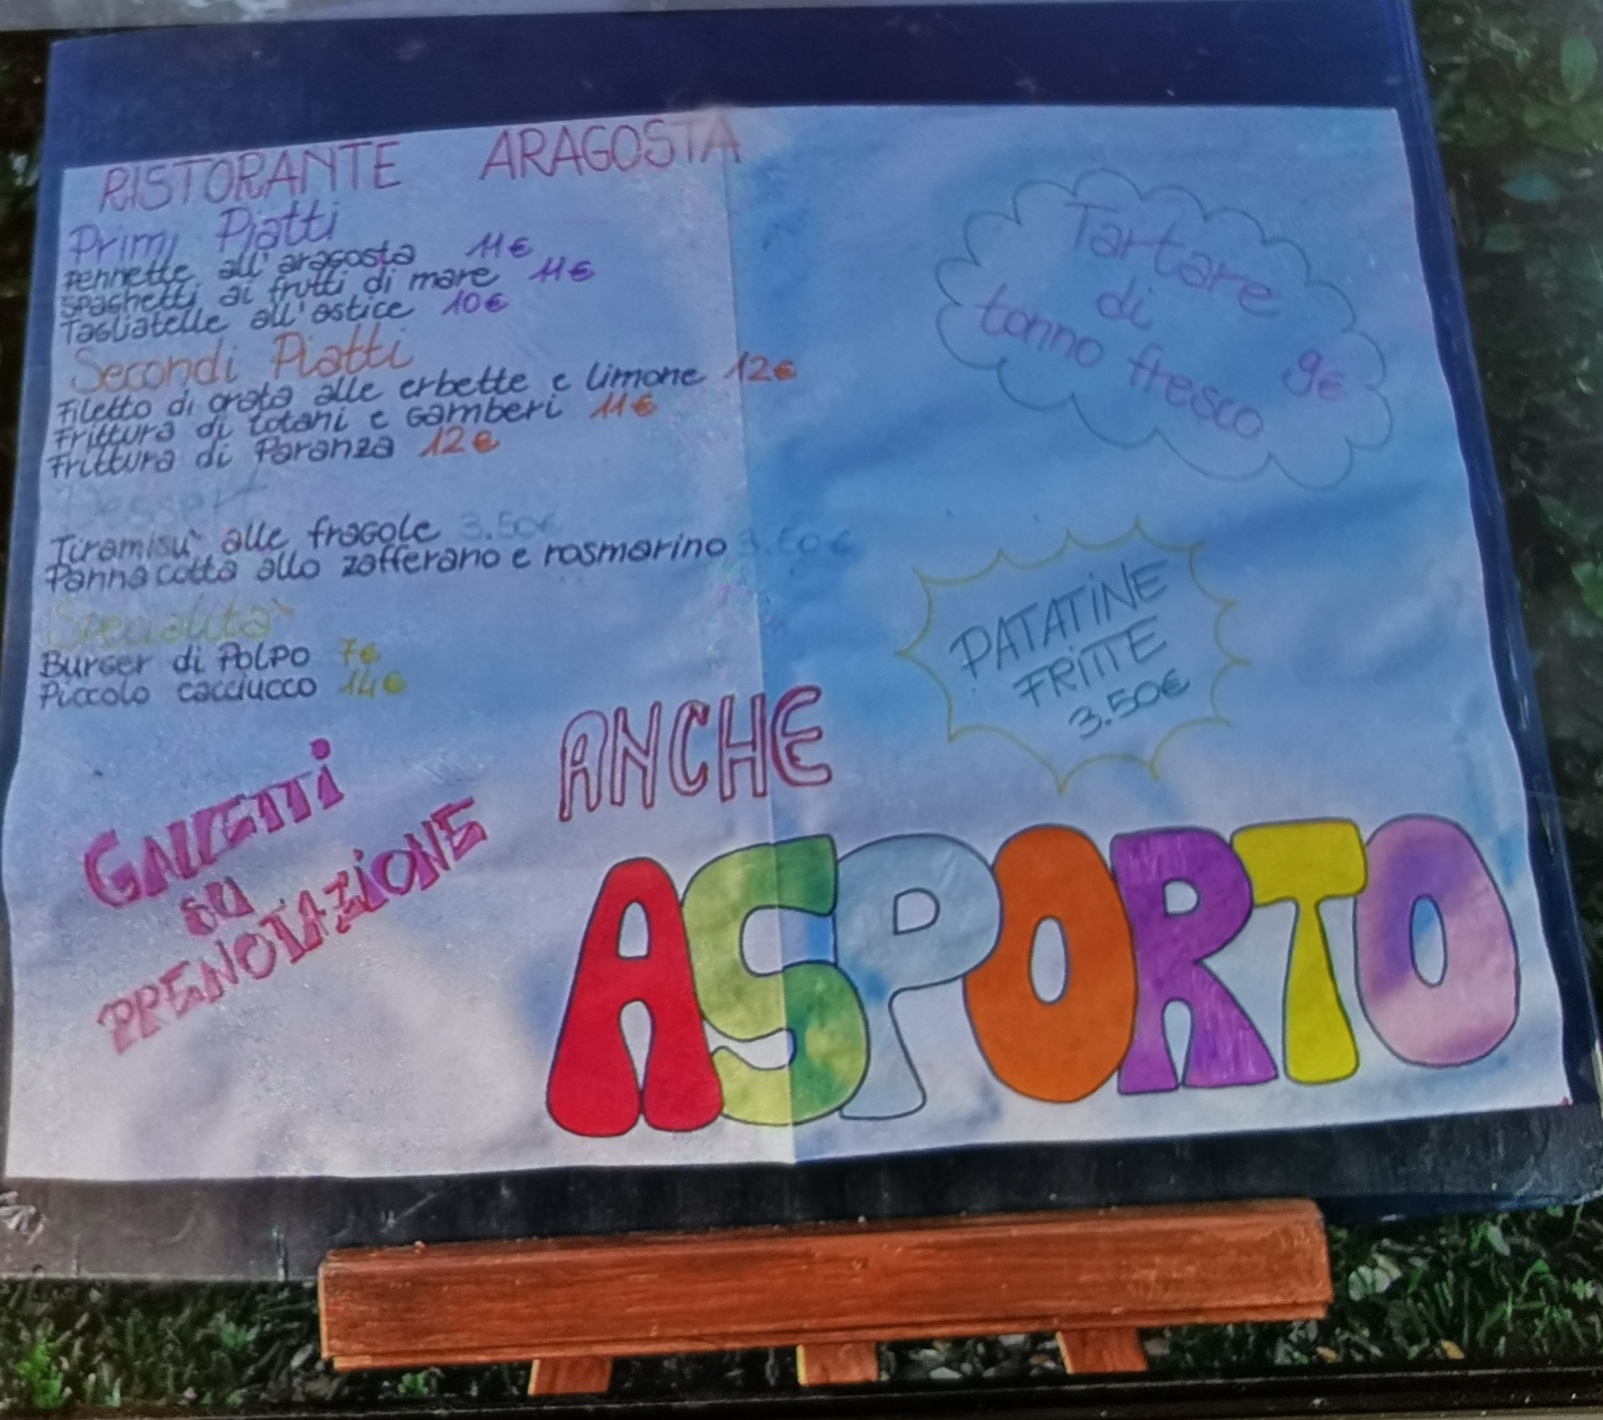 RISTORANTE ARAGOSTA
Primi Piatti
Pennette all'aragosta 11€
Spaghetti ai frutti di mare 11€
Tagliatelle all'astice 10€
Secondi Piatti
Filetto di orata alle erbette e limone 12€
Frittura di totani e gamberi 11€
Frittura di Paranza 12€
Dessert
Tiramisu' alle fragole 3.50€
Panna cotta allo zafferano e rosmarino 3.50€
Specialita'
Burger di Polpo 7€
Piccolo cacciucco 14€
Tartare
di
tonno fresco 9€
PATATINE
FRITTE
3.50€
GALLETTI
SU
PRENOTAZIONE
ANCHE
ASPORTO